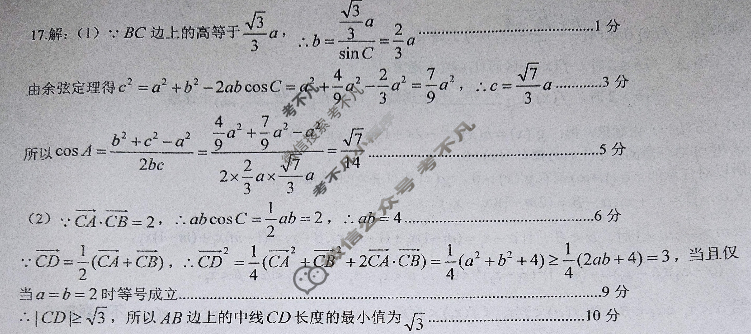 17.解:(1)∵BC边上的高等于√3/3 a,∴b=(√3/3 a)/sin C=2/3 a……1分
由余弦定理得c²=a²+b²−2ab cos C=a²+4/9 a²−2/3 a²=7/9 a²,∴c=√7/3 a……3分
所以cos A=(b²+c²−a²)/2bc=(4/9 a²+7/9 a²−a²)/(2×2/3 a×√7/3 a)=√7/14……5分
(2)∵CA·CB=2,∴ab cos C=1/2 ab=2,∴ab=4……6分
∵CD=1/2(CA+CB),∴CD²=1/4(CA²+CB²+2CA·CB)=1/4(a²+b²+4)≥1/4(2ab+4)=3,当且仅
当a=b=2时等号成立……9分
∴|CD|≥√3,所以AB边上的中线CD长度的最小值为√3……10分
微信搜索 考不凡
考不凡
微信公众号 考不凡